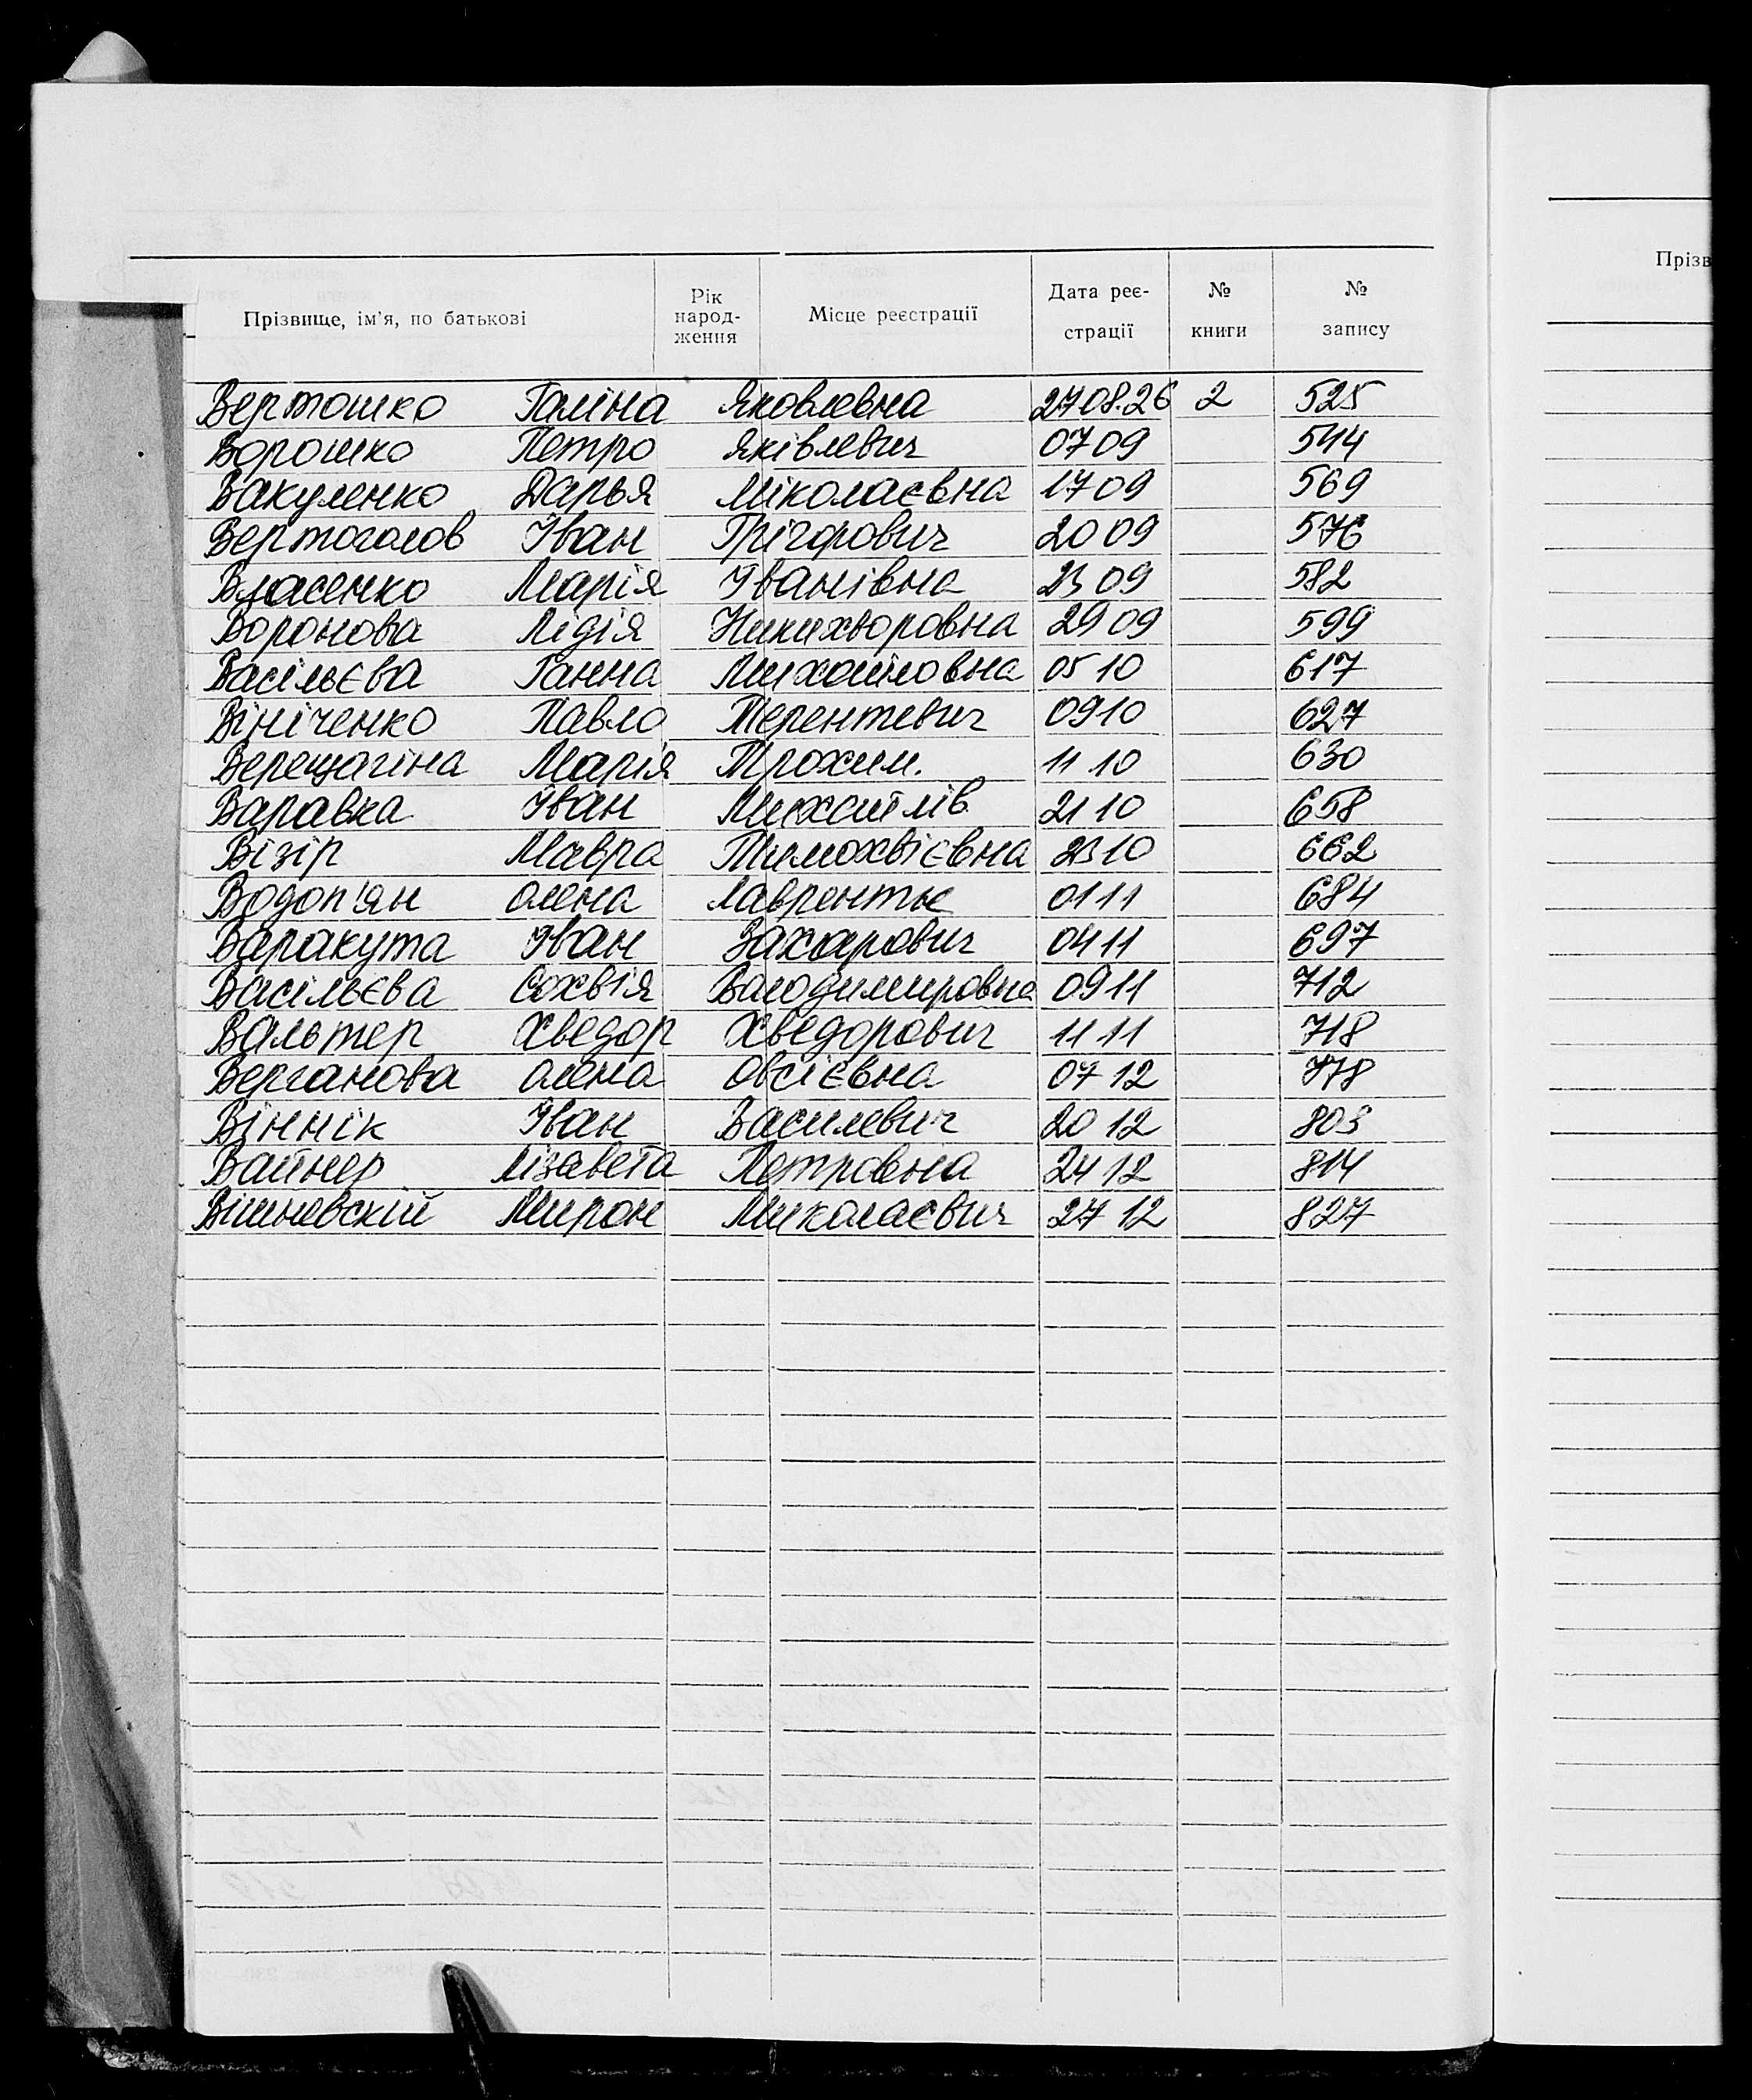 Прізвище, ім'я, по батькові Рік народ- ження Місце реєстрації Дата реє- страції № книги № запису
Прізв
Вертошко Галіна Яковлевна 27 08.26 2 525
Ворошко Петро Яківлевич 07 09 544
Вакуленко Дарья Міколаєвна 17 09 569
Вертоголов Іван Грігорович 20 09 576
Власенко Марія Іванівна 23 09 582
Воронова Лідія Никихворовна 29 09 599
Васільєва Ганна Михайловна 05 10 617
Вініченко Павло Терентевич 09 10 627
Верещагіна Марія Трохим. 11 10 630
Варавка Іван Михайлів 21 10 658
Візір Мавра Тимохвієвна 23 10 662
Водоп'ян Олена Лаврентьє 01 11 684
Варакута Іван Захарович 04 11 697
Васільєва Сохвія Володимировна 09 11 712
Вальтер Хведор Хведорович 11 11 718
Верганова Олена Овсієвна 07 12 778
Віннік Іван Василевич 20 12 803
Вайнер Лізавета Петровна 24 12 814
Вішневскій Мирон Миколаєвич 27 12 827